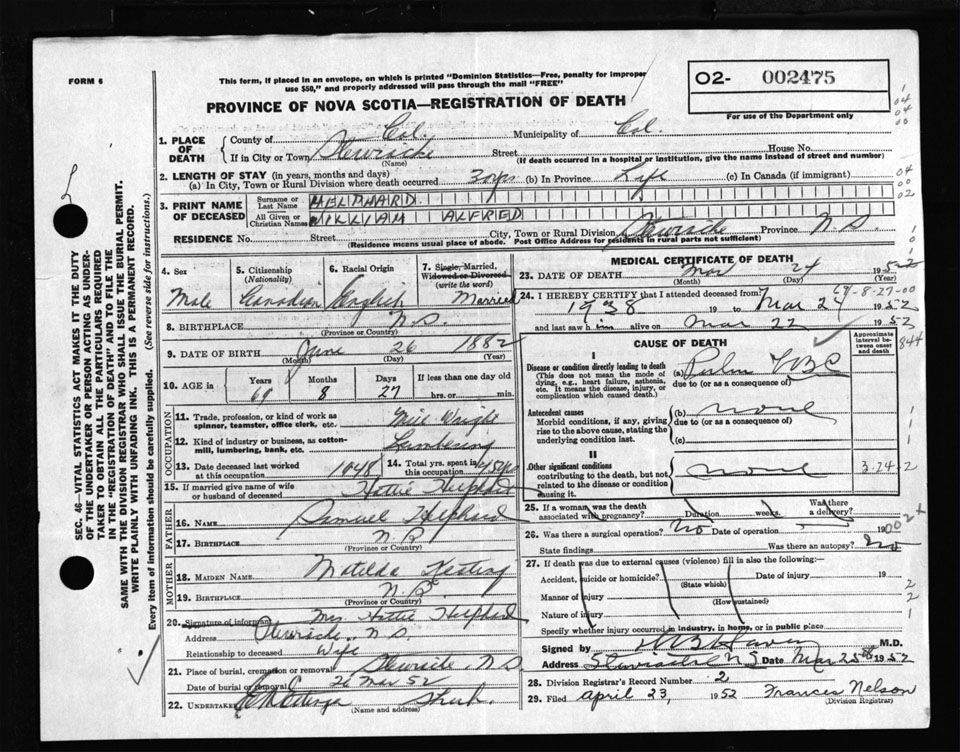 FORM 6
This form, if placed in an envelope, on which is printed "Dominion Statistics—Free, penalty for improper
use $50," and properly addressed will pass through the mail "FREE"
O2- 002475
For use of the Department only
PROVINCE OF NOVA SCOTIA—REGISTRATION OF DEATH
1. PLACE OF DEATH
County of Col. Municipality of Col.
If in City or Town Stewiacke Street House No.
(Name) (If death occurred in a hospital or institution, give the name instead of street and number)
2. LENGTH OF STAY (in years, months and days)
(a) In City, Town or Rural Division where death occurred 30 yrs (b) In Province Life (c) In Canada (if immigrant)
3. PRINT NAME OF DECEASED
Surname or Last Name HELPHARD
All Given or Christian Names WILLIAM ALFRED
RESIDENCE No. Street City, Town or Rural Division Stewiacke Province N.S.
(Residence means usual place of abode. Post Office Address for residents in rural parts not sufficient)
4. Sex Male
5. Citizenship (Nationality) Canadian
6. Racial Origin English
7. Single, Married, Widowed or Divorced (write the word) Married
8. BIRTHPLACE N.S.
(Province or Country)
9. DATE OF BIRTH June 26 1882
(Month) (Day) (Year)
10. AGE in Years 69 Months 8 Days 27 If less than one day old hrs. or min.
OCCUPATION
11. Trade, profession, or kind of work as spinner, teamster, office clerk, etc. Mill Wright
12. Kind of industry or business, as cotton-mill, lumbering, bank, etc. Lumbering
13. Date deceased last worked at this occupation 1048
14. Total yrs. spent in this occupation
15. If married give name of wife or husband of deceased Hattie Helphard
FATHER
16. NAME Samuel Helphard
17. BIRTHPLACE N.B.
(Province or Country)
MOTHER
18. MAIDEN NAME Matilda
19. BIRTHPLACE N.B.
(Province or Country)
20. Signature of informant Mrs Hattie Helphard
Address Stewiacke, N.S.
Relationship to deceased Wife
21. Place of burial, cremation or removal Stewiacke N.S.
Date of burial or removal 26 Mar 52
22. UNDERTAKER
(Name and address)
MEDICAL CERTIFICATE OF DEATH
23. DATE OF DEATH Mar 24 1952
(Month) (Day) (Year)
24. I HEREBY CERTIFY that I attended deceased from
1938 19 to Mar 24 1952
69-8-27-00
and last saw him alive on Mar 22 1952
CAUSE OF DEATH
Approximate interval between onset and death
844
I
Disease or condition directly leading to death
(This does not mean the mode of dying, e.g., heart failure, asthenia, etc. It means the disease, injury, or complication which caused death.)
(a) Pulm TBC
due to (or as a consequence of)
Antecedent causes
Morbid conditions, if any, giving rise to the above cause, stating the underlying condition last.
(b) none
due to (or as a consequence of)
(c)
II
Other significant conditions contributing to the death, but not related to the disease or condition causing it.
none
3-24-2
25. If a woman, was the death associated with pregnancy? Duration weeks. Was there a delivery?
26. Was there a surgical operation? No Date of operation 19
State findings Was there an autopsy? No
27. If death was due to external causes (violence) fill in also the following:—
Accident, suicide or homicide? Date of injury 19
(State which)
Manner of injury
(How sustained)
Nature of injury
Specify whether injury occurred in industry, in home, or in public place
Signed by M.D.
Address Stewiacke N.S. Date Mar 25th 1952
28. Division Registrar's Record Number 2
29. Filed April 23, 1952 Frances Nelson
(Division Registrar)
SEC. 46—VITAL STATISTICS ACT MAKES IT THE DUTY
OF THE UNDERTAKER OR PERSON ACTING AS UNDER-
TAKER TO OBTAIN ALL THE PARTICULARS REQUIRED
IN THE "REGISTRATION OF DEATH" AND TO FILE THE
SAME WITH THE DIVISION REGISTRAR WHO SHALL ISSUE THE BURIAL PERMIT.
WRITE PLAINLY WITH UNFADING INK. THIS IS A PERMANENT RECORD.
Every item of information should be carefully supplied. (See reverse side for instructions.)